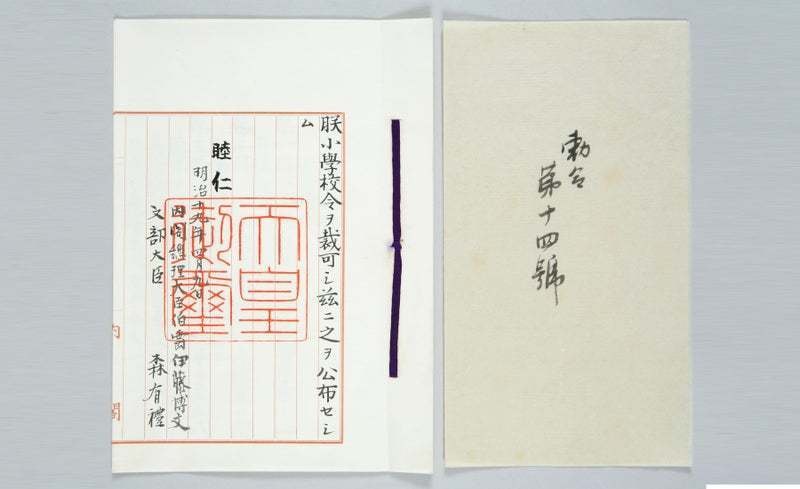 勅令
第十四號
朕小學校令ヲ裁可シ茲ニ之ヲ公布セシ
ム
睦仁
天皇
御璽
明治十九年四月九日
内閣總理大臣伯爵伊藤博文
文部大臣 森有禮
内閣